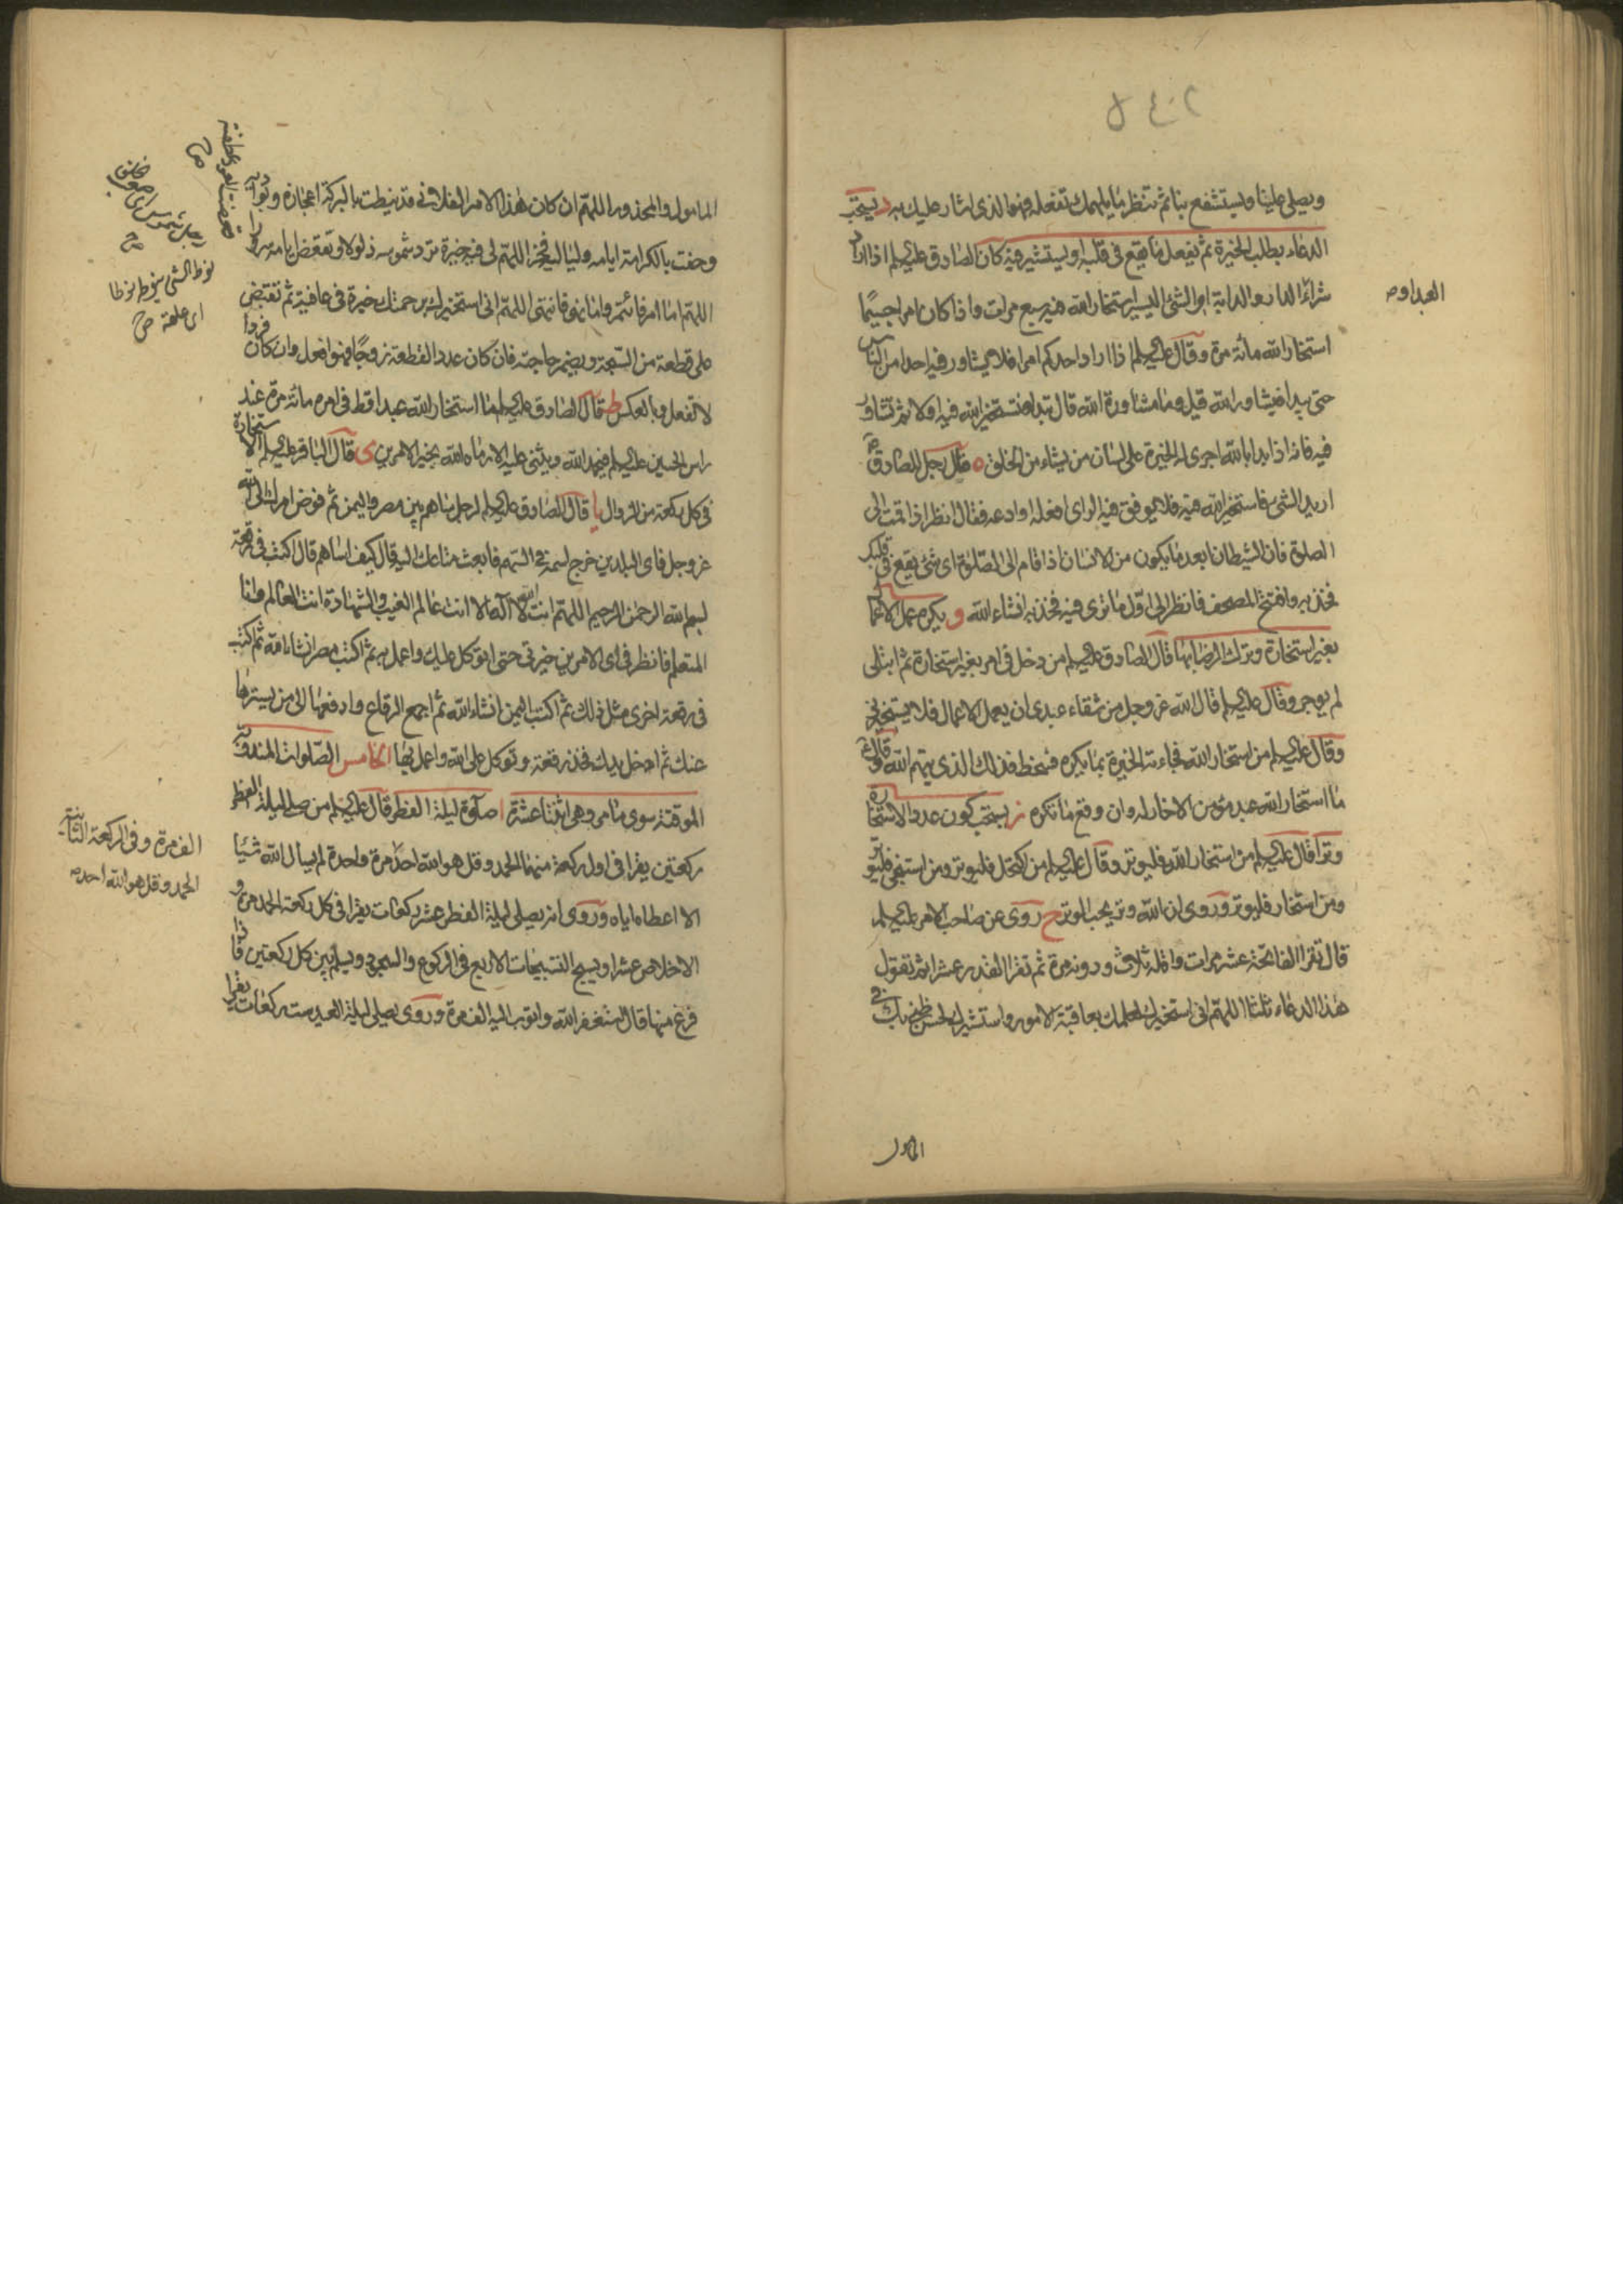 ويصلى علينا ويستشفع بنا ثم تنظر ما يلهمك تفعله فهو الذى اشار عليك به د يستحب
الدعاء بطلب الخيرة ثم يفعل ما يقع فى قلبه او ليستشير فيه كان الصادق عليه السلم اذا اراد
شراء الدار والدابة او الشئ اليسير استخار الله فيه سبع مرات واذا كان امرا جسيما
العبد او
استخار الله مائة مرة وقال عليه السلم اذا اراد احدكم امرا فلا يشاور فيه احدا من الناس
حتى يبدا فيشاور الله قيل وما مشاورة الله قال تبدا فتستخير الله فيه اولا ثم تشاور
فيه فانه اذا بدا بالله اجرى له الخيرة على لسان من يشاء من الخلق ه قال رجل للصادق
اريد الشئ فاستخير الله فيه فلا يوفق فيه الراى افعله او ادعه فقال انظر اذا قمت الى
الصلوة فان الشيطان ابعد ما يكون من الانسان اذا قام الى الصلوة اى شئ يقع فى قلبك
فخذ به وافتح المصحف فانظر الى اول ما ترى فيه فخذ به انشاء الله و يكره عمل الاعمال
بغير استخارة وترك الرضا بها قال الصادق عليه السلم من دخل فى امر بغير استخارة ثم ابتلى
لم يوجر وقال عليه السلم قال الله عز وجل من شقاء عبدى ان يعمل الاعمال فلا يستخيرنى
وقال عليه السلم من استخار الله فجاءته الخيرة بما يكره فسخط فذلك الذى يتهم الله وقال
ما استخار الله عبد مؤمن الا خار له وان وقع ما تكره ز يستحب كون عدد الاستخارة
وترا قال عليه السلم من استخار الله فليوتر وقال عليه السلم من اكتحل فليوتر ومن استنجى فليوتر
ومن استخار فليوتر وروى ان الله وتر يحب الوتر ح روى عن صاحب الامر عليه السلم
قال تقرا الفاتحة عشر مرات واقله ثلاث ودونه مرة ثم تقرا القدر عشرا ثم تقول
هذا الدعاء ثلثا اللهم انى استخيرك لعلمك بعاقبة الامور واستشيرك لحسن ظنى بك فى
المامول
المامول والمحذور اللهم ان كان هذا الامر الفلانى قد نيطت بالبركة اعجازه وبواديه
وحفت بالكرامة ايامه ولياليه فخر اللهم لى فيه خيرة ترد شموسه ذلولا وتقعض ايامه سرورا
اللهم اما امر فائتمر واما نهى فانتهى اللهم انى استخيرك برحمتك خيرة فى عافية ثم تقبض
على قطعة من السبحة ويضمر حاجته فان كان عدد القطعة زوجا فهو افعل وان كان فردا
لا تفعل وبالعكس ط قال الصادق عليه السلم ما استخار الله عبد قط فى امره مائة مرة عند
راس الحسين عليه السلم فيحمد الله ويثنى عليه الا رماه الله بخير الامرين ى قال الباقر عليه السلم الاستخارة
فى كل ركعة من الزوال يا قال الصادق عليه السلم لرجل ساهم بين مصر واليمن ثم فوض امرك الى الله
عز وجل فاى البلدين خرج اسمه فى السهم فابعث متاعك اليه قال كيف اساهم قال اكتب فى رقعة
بسم الله الرحمن الرحيم اللهم انت الله لا اله الا انت عالم الغيب والشهادة انت العالم وانا
المتعلم فانظر فى اى الامرين خير لى حتى اتوكل عليك واعمل به ثم اكتب مصر انشاء الله ثم اكتب
فى رقعة اخرى مثل ذلك ثم اكتب اليمن انشاء الله ثم اجمع الرقاع وادفعها الى من يسترها
عنك ثم ادخل يدك فخذ رقعة وتوكل على الله واعمل بها الخامس الصلوات المندوبة
الموقتة سوى ما مر وهى اثنتا عشرة ا صلوة ليلة الفطر قال عليه السلم من صلى ليلة الفطر
ركعتين يقرا فى اول ركعة منهما الحمد وقل هو الله احد مرة واحدة لم يسال الله شيئا
الا اعطاه اياه وروى انه يصلى ليلة الفطر عشر ركعات يقرا فى كل ركعة الحمد مرة و
الاخلاص عشرا ويسبح التسبيحات الاربع فى الركوع والسجود ويسلم بين كل ركعتين فاذا
فرغ منها قال استغفر الله واتوب اليه الف مرة وروى يصلى ليلة العيد ست ركعات يقرا
نوط الشئ ينوط نوطا
اى علقه ص
الف مرة وفى الركعة الثانية
الحمد وقل هو الله احد